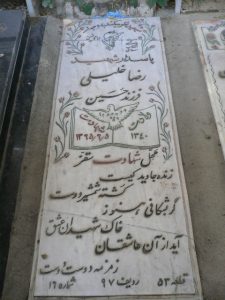 پاسدار شهید
رضا خلیلی
فرزند حسین
۱۳۴۰
۱۳۶۵/۶/۵
محل شهادت سقز
زنده جاوید کیست
کشته شمشیر دوست
خاک شهیدان عشق
آید از آن عاشقان
زمزمه دوست دوست
قطعه ۵۳ ردیف ۹۷ شماره ۱۶